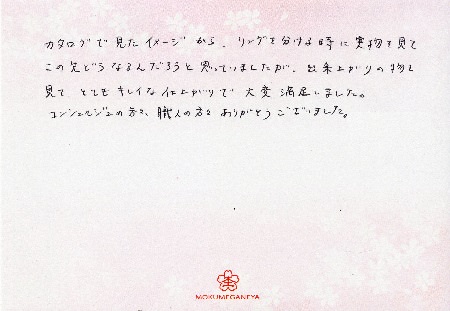 カタログで見たイメージから、リングを分ける時に実物を見て
この先どうなるんだろうと思っていましたが、出来上がりの物を
見て とてもキレイな仕上がりで 大変満足しました。
コンシェルジュの方々、職人の方々 ありがとうございました。
MOKUMEGANEYA